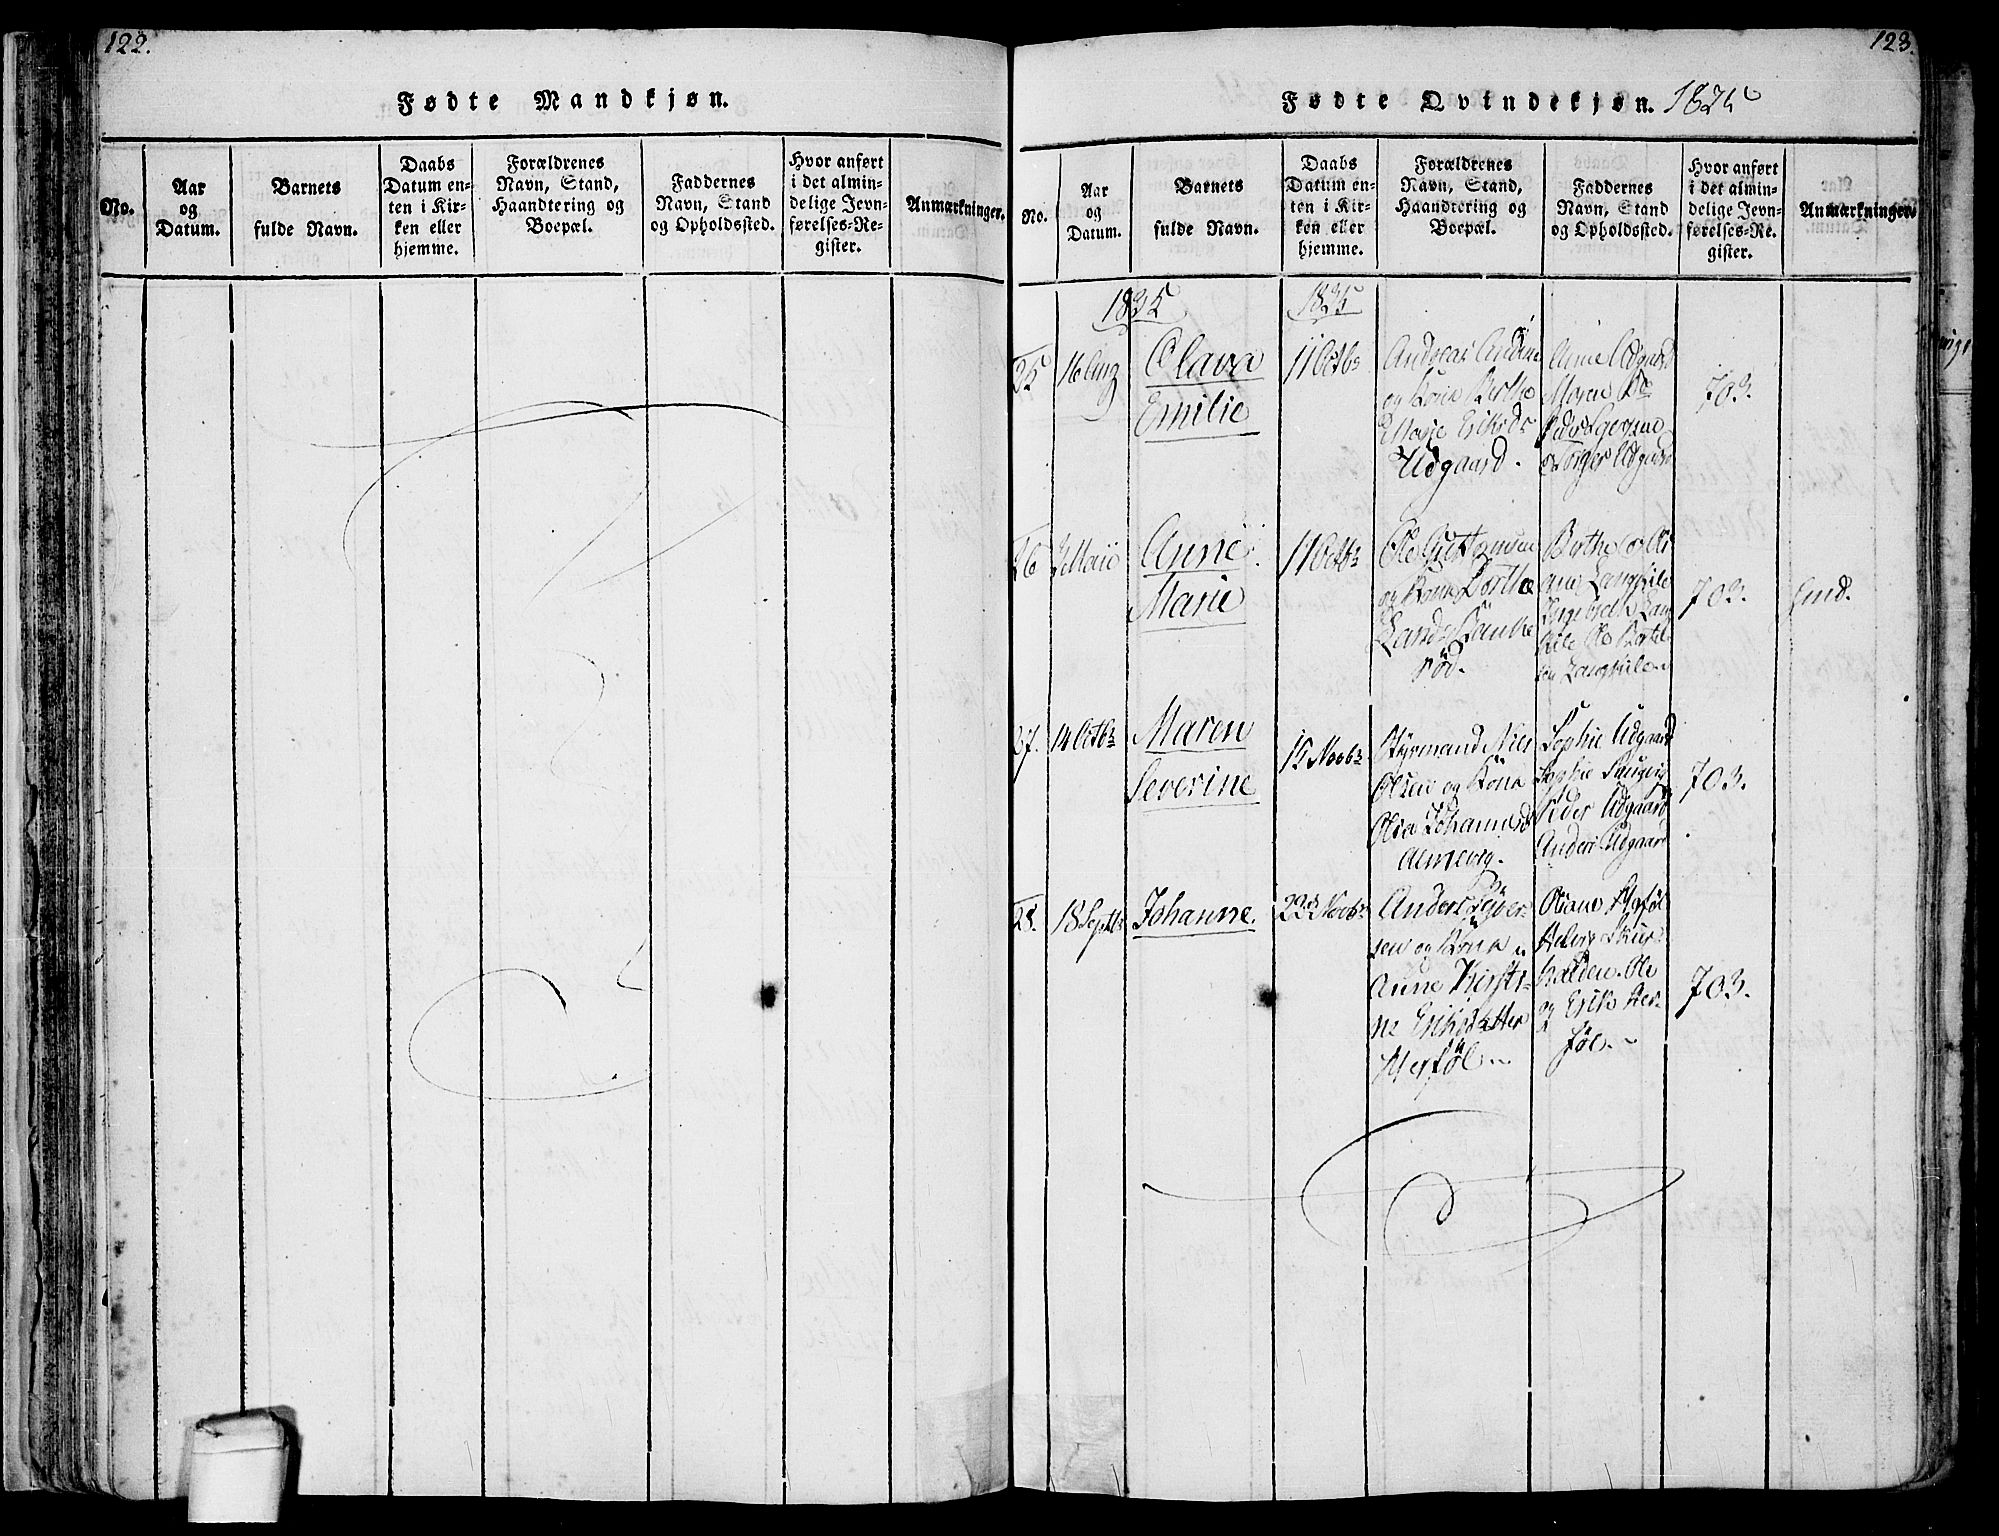 122.
Fødte Mandkjøn.
No.
Aar
og
Datum.
Barnets
fulde Navn.
Daabs
Datum en-
ten i Kir-
ken eller
hjemme.
Forældrenes
Navn, Stand,
Haandtering og
Boepæl.
Faddernes
Navn, Stand
og Opholdssted.
Hvor anført
i det almin-
delige Jevn-
førelses-Re-
gister.
Anmærkninger.
123.
Fødte Qvindekjøn. 1835
No.
Aar
og
Datum.
Barnets
fulde Navn.
Daabs
Datum en-
ten i Kir-
ken eller
hjemme.
Forældrenes
Navn, Stand,
Haandtering og
Boepæl.
Faddernes
Navn, Stand
og Opholdssted.
Hvor anført
i det almin-
delige Jevn-
førelses-Re-
gister.
Anmærkninger.
1835
1835
25
16 Aug
Olava
Emilie
11 Octbr
Andreas
og Kone Berthe
Marie
Udgaard.
Anne Udgaard
Maren
Udgaard
703.
26
Maii
Anne
Marie
11 Octbr
Ole
og Kone Dorthe
rød.
Berthe
Langkile
Ingeborg
Ole Bertel
sen Langkile
703.
27.
14 Octbr
Maren
Severine
15 Novbr
Styrmand Niels
Olsen og Kone
Olia Johannesd
Almevig.
Sophie Udgaard
Sophie
Peder Udgaard
Anders Udgaard
703.
28.
18 Septbr
Johanne.
22 Novbr
Anders
sen og Kone
Anne Kirsti-
ne Eriksdatter
Herføl
Oliane Herføl
Helene
Ole
og Erik Her-
føl.
703.